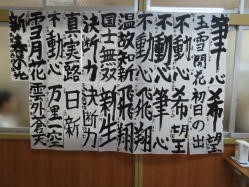 希望
玉雪開花 初日の出
不動心 希望
不動心 筆心
不動心 飛翔
温故知新 飛翔
国士無双 新生
決断力 決断力
真実路 日新
不動心 万里一空
雪月花 雲外蒼天